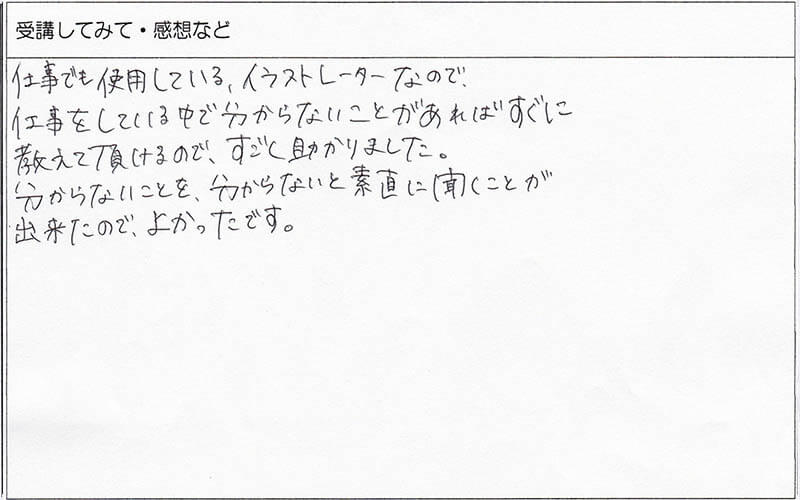 受講してみて・感想など
仕事でも使用している、イラストレーターなので、
仕事をしている中で分からないことがあればすぐに
教えて頂けるので、すごく助かりました。
分からないことを、分からないと素直に聞くことが
出来たので、よかったです。